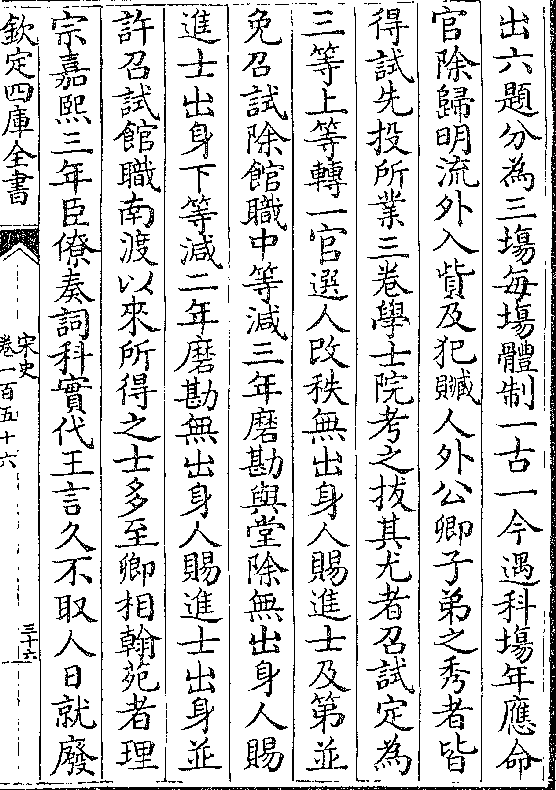 出六題分為三塲每塲體制一古一今遇科塲年應命
官除歸明流外入貲及犯贓人外公卿子弟之秀者皆
得試先投所業三卷學士院考之拔其尤者召試定為
三等上等轉一官選人改秩無出身人賜進士及第並
免召試除館職中等減三年磨勘與堂除無出身人賜
進士出身下等減二年磨勘無出身人賜進士出身並
許召試館職南渡以來所得之士多至卿相翰苑者理
宗嘉熙三年臣僚奏詞科實代王言久不取人日就廢
欽定四庫全書
宋史
卷一百五十六
三十六